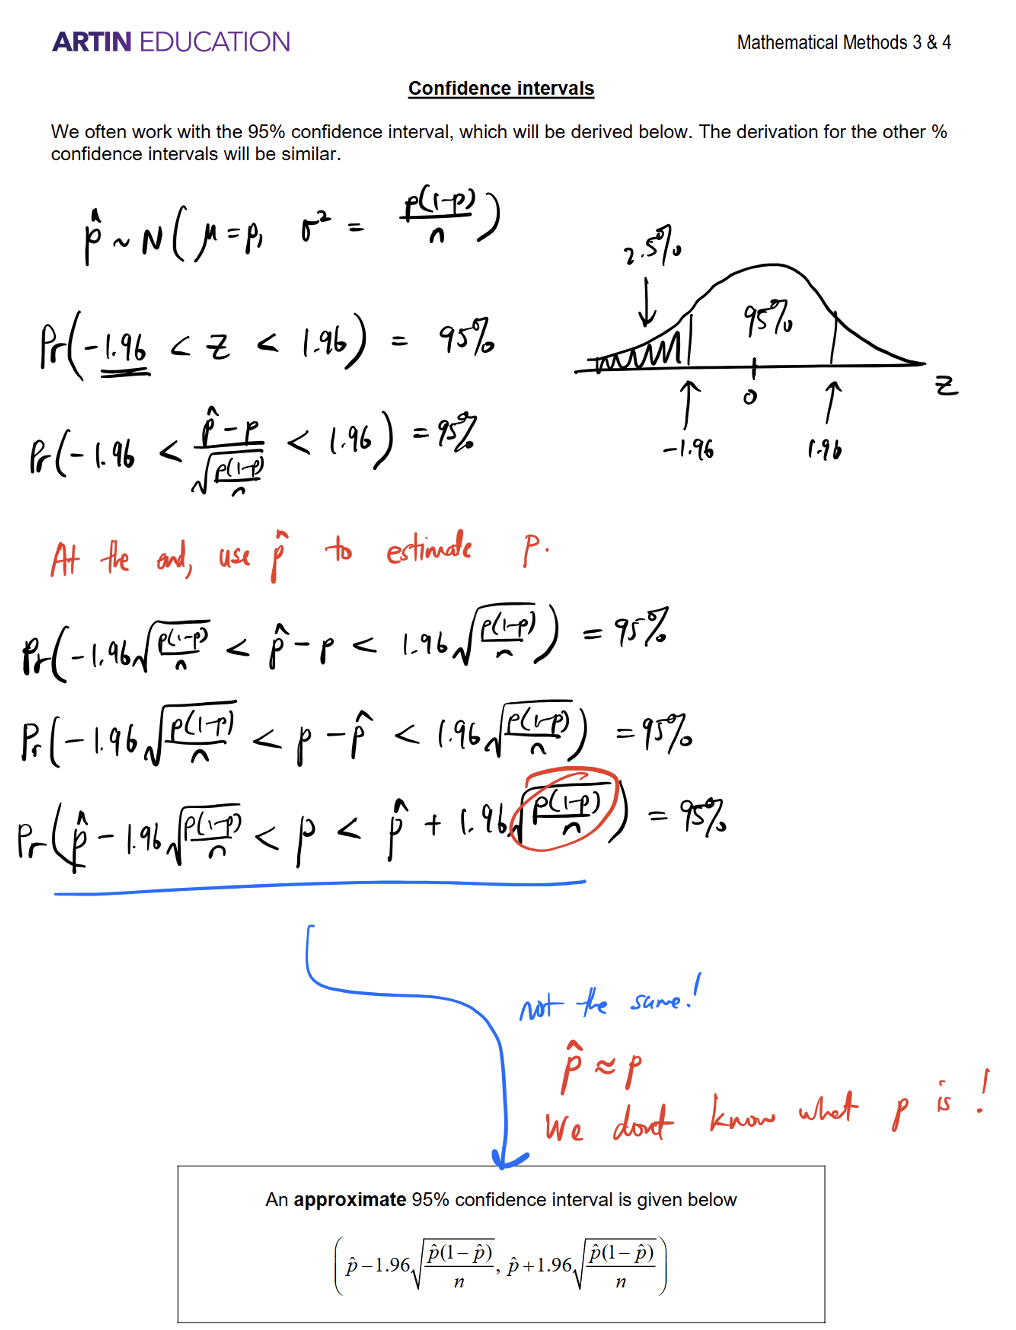 ARTIN EDUCATION
Mathematical Methods 3 & 4
Confidence intervals
We often work with the 95% confidence interval, which will be derived below. The derivation for the other %
confidence intervals will be similar.
p̂ ~ N( μ = p, σ² = p(1-p)/n )
2.5%
95%
0
z
-1.96
1.96
Pr(-1.96 < z < 1.96) = 95%
Pr(-1.96 < (p̂ - p)/√(p(1-p)/n) < 1.96) = 95%
At the end, use p̂ to estimate p.
Pr(-1.96√(p(1-p)/n) < p̂ - p < 1.96√(p(1-p)/n)) = 95%
Pr(-1.96√(p(1-p)/n) < p - p̂ < 1.96√(p(1-p)/n)) = 95%
Pr(p̂ - 1.96√(p(1-p)/n) < p < p̂ + 1.96√(p(1-p)/n)) = 95%
not the same!
p̂ ≈ p
We dont know what p is!
An approximate 95% confidence interval is given below
(p̂ - 1.96√(p̂(1-p̂)/n), p̂ + 1.96√(p̂(1-p̂)/n))